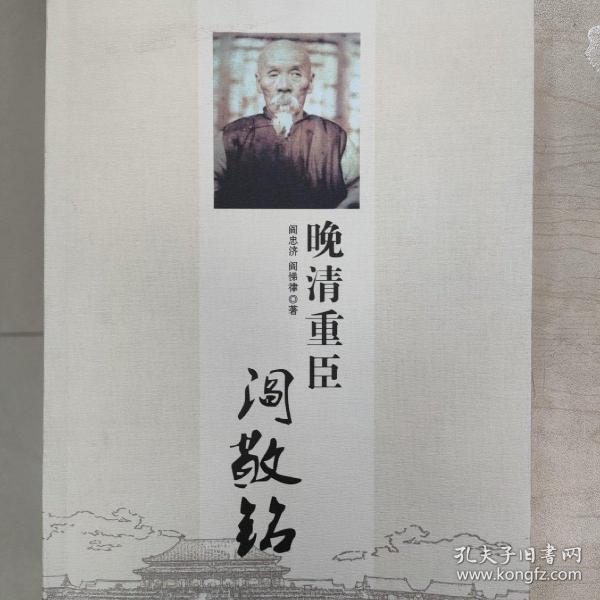 晚清重臣
阎敬铭
阎忠济 阎悌律◎著
孔夫子旧书网
www.kongfz.com